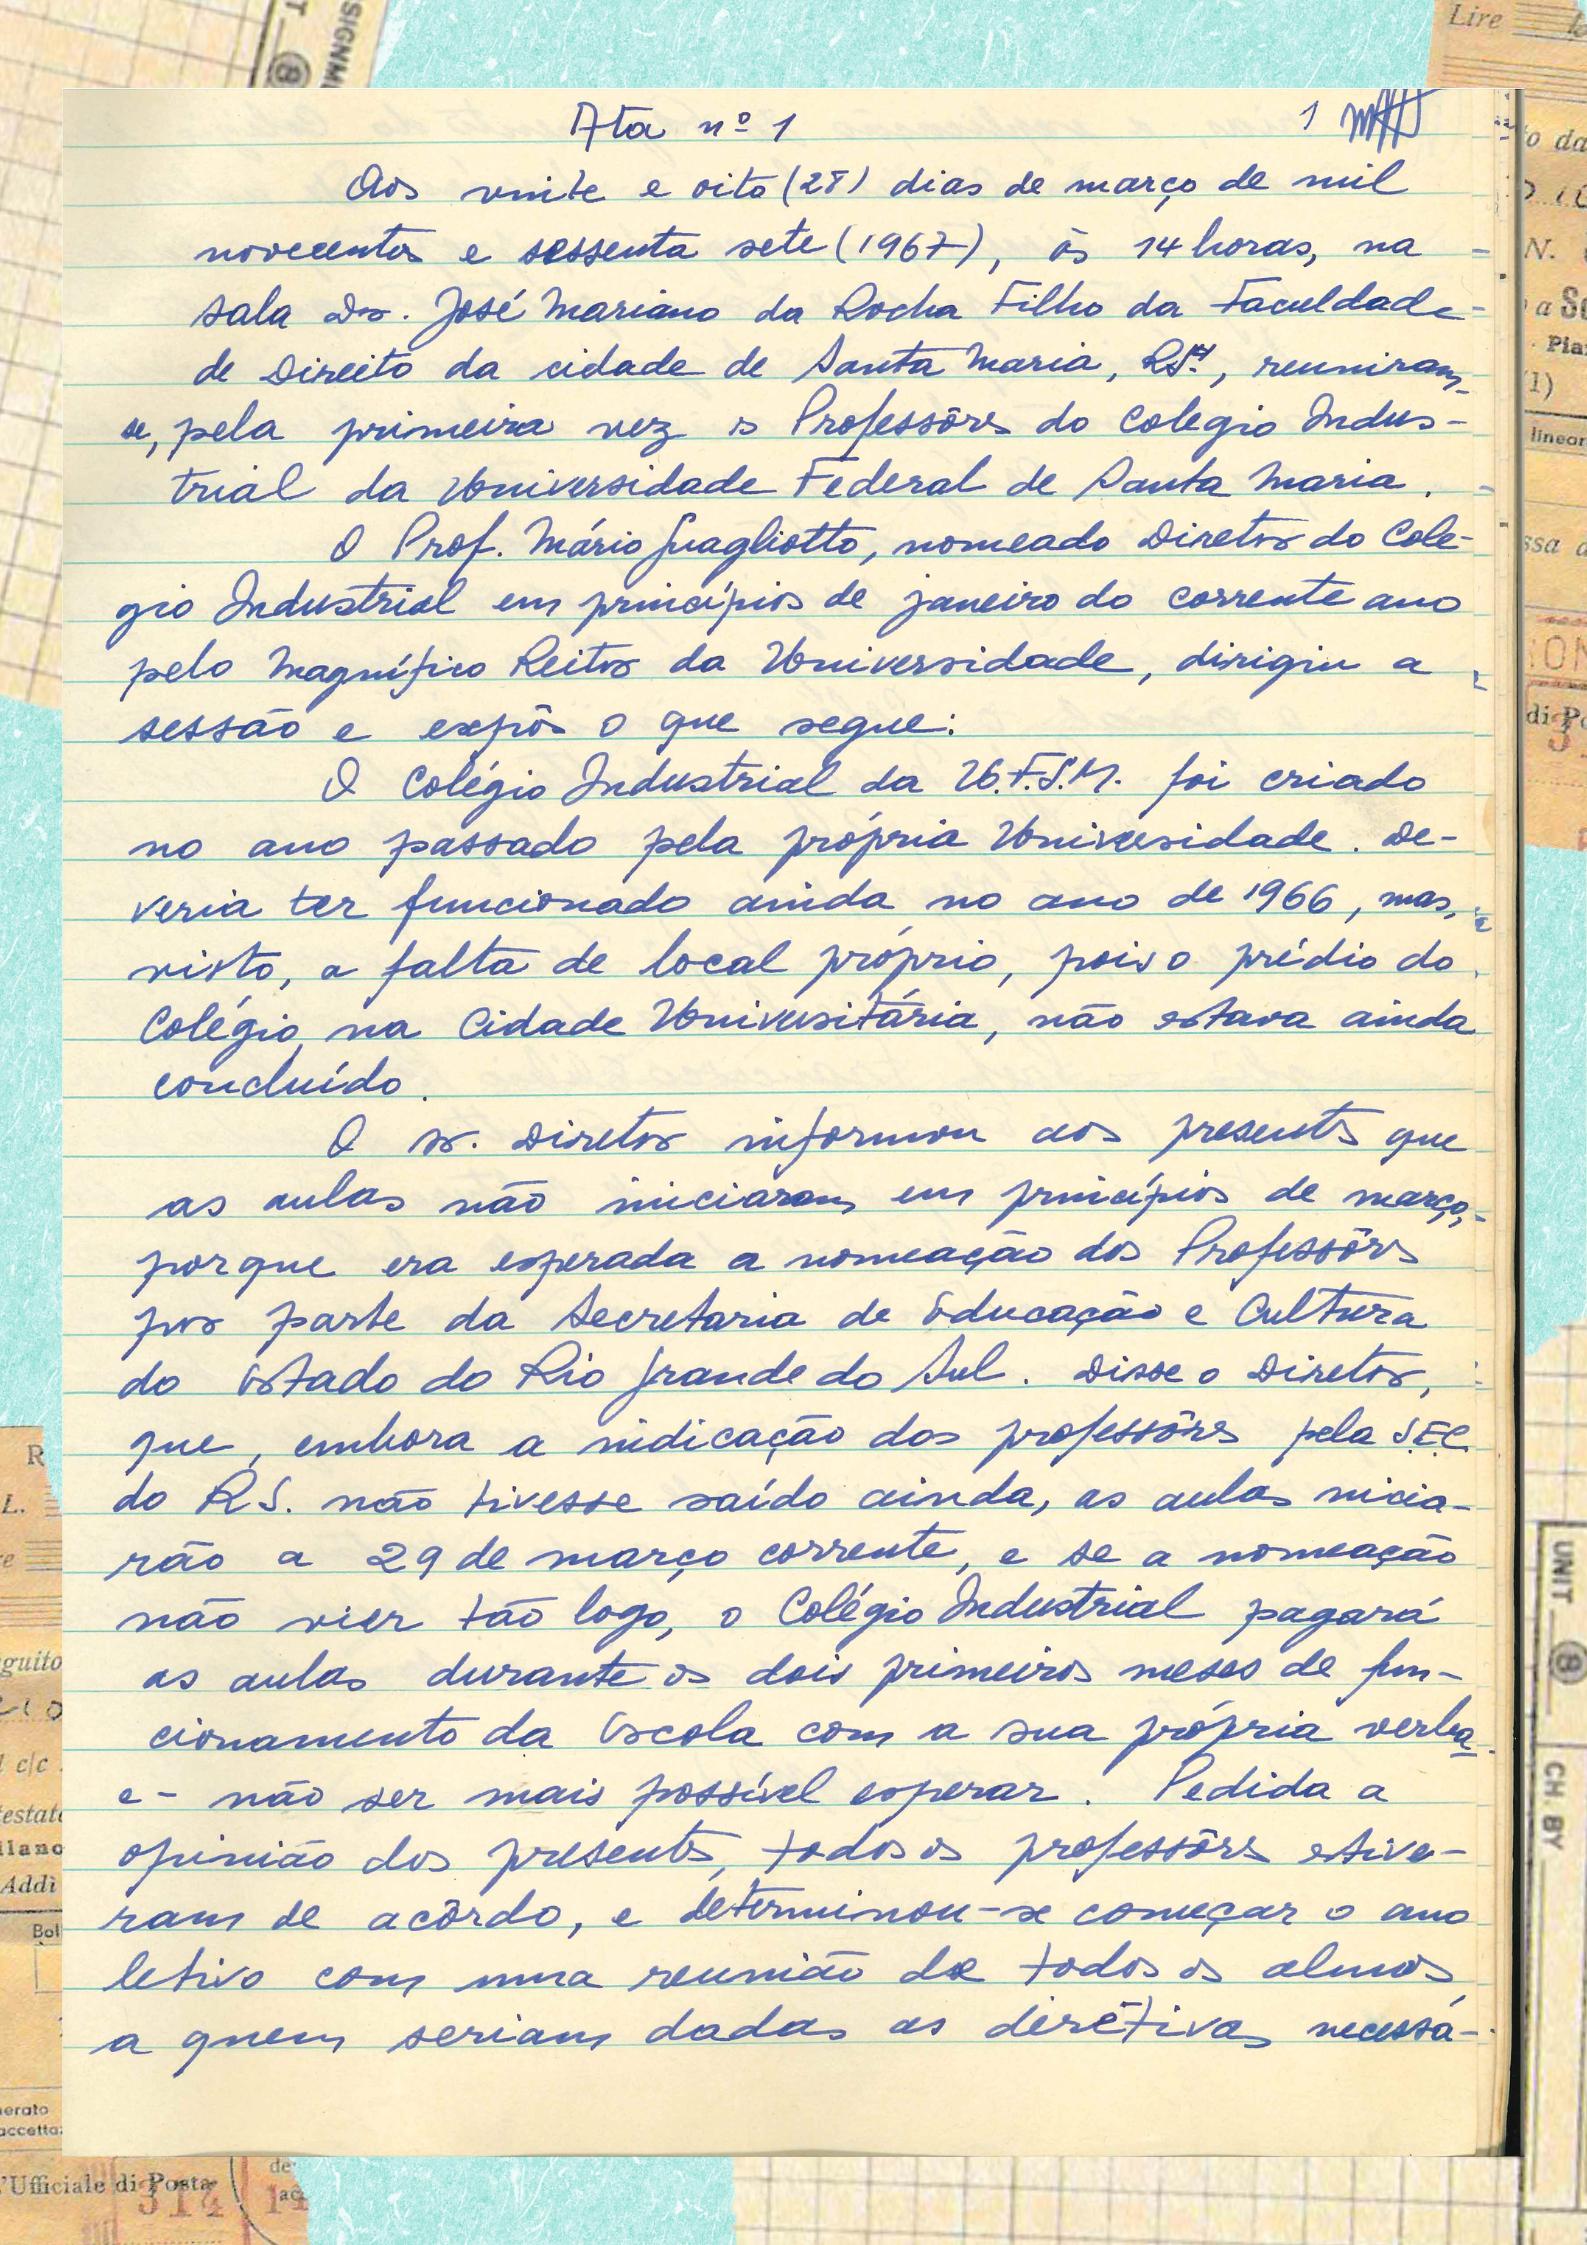 Ata nº 1
1
Aos vinte e oito (28) dias de março de mil
novecentos e sessenta sete (1967), às 14 horas, na
sala Dr. José Mariano da Rocha Filho da Faculdade
de Direito da cidade de Santa Maria, RS., reuniram-
se, pela primeira vez os Professôres do Colegio Indus-
trial da Universidade Federal de Santa Maria.
O Prof. Mário Guagliotto, nomeado Diretor do Cole-
gio Industrial em princípios de janeiro do corrente ano
pelo Magnífico Reitor da Universidade, dirigiu a
sessão e expôs o que segue:
O Colégio Industrial da U.F.S.M. foi criado
no ano passado pela própria Universidade. De-
veria ter funcionado ainda no ano de 1966, mas,
visto, a falta de local próprio, pois o prédio do
Colégio, na Cidade Universitária, não estava ainda
concluído.
O sr. Diretor informou aos presentes que
as aulas não iniciaram em princípios de março,
porque era esperada a nomeação dos Professôres
por parte da Secretaria de Educação e Cultura
do Estado do Rio Grande do Sul. Disse o Diretor,
que, embora a indicação dos professôres pela S.E.C.
do R.S. não tivesse saído ainda, as aulas inicia-
rão a 29 de março corrente, e se a nomeação
não vier tão logo, o Colégio Industrial pagará
as aulas durante os dois primeiros meses de fun-
cionamento da Escola com a sua própria verba.
e- não ser mais possível esperar. Pedida a
opinião dos presentes, todos os professôres estive-
ram de acôrdo, e determinou-se começar o ano
letivo com uma reunião de todos os alunos,
a quem seriam dadas as diretivas necessá-
Lire
o da
N.
a
Pia
1)
linear
ssa
ION
di Po
UNIT 8
CH. BY
R
L.
guito
c/c
testat
ilano
Addì
Bol
nerato
accetta
l'Ufficiale di Posta
314